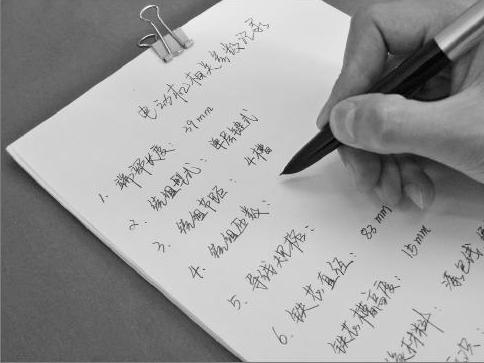 电动机相关参数记录
1. 端部长度： 39mm
2. 绕组型式： 单层链式
3. 绕组节距： 4槽
4. 绕组匝数：
5. 导线规格：
6. 铁芯直径： 83mm
铁芯槽高度： 15mm
材料： 漆包线